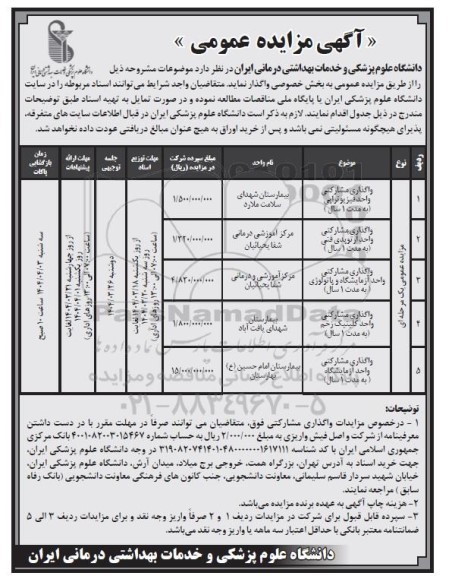 « آگهی مزایده عمومی »
دانشگاه علوم پزشکی و خدمات بهداشتی درمانی ایران در نظر دارد موضوعات مشروحه ذیل
را از طریق مزایده عمومی به بخش خصوصی واگذار نماید. متقاضیان واجد شرایط می توانند اسناد مربوطه را در سایت
دانشگاه علوم پزشکی ایران یا پایگاه ملی مناقصات مطالعه نموده و در صورت تمایل به تهیه اسناد طبق توضیحات
مندرج در ذیل جدول اقدام نمایند. لازم به ذکر است دانشگاه علوم پزشکی ایران در قبال اطلاعات سایت های متفرقه،
پذیرای هیچگونه مسئولیتی نمی باشد و پس از خرید اوراق به هیچ عنوان مبالغ دریافتی عودت داده نخواهد شد.
ردیف نوع موضوع نام واحد مبلغ سپرده شرکت در مزایده (ریال) مهلت توزیع اسناد جلسه توجیهی مهلت ارائه پیشنهادات زمان بازگشایی پاکات
مزایده عمومی یک مرحله ای
۱ واگذاری مشارکتی واحد فیزیوتراپی (به مدت ۱ سال) بیمارستان شهدای سلامت ملارد ۱/۵۰۰/۰۰۰/۰۰۰
۲ واگذاری مشارکتی واحد ارتوپدی فنی (به مدت ۱ سال) مرکز آموزشی درمانی شفا یحیائیان ۱/۳۲۰/۰۰۰/۰۰۰
۳ واگذاری مشارکتی واحد آزمایشگاه و پاتولوژی (به مدت ۱ سال) مرکز آموزشی و درمانی شفا یحیائیان ۴/۸۳۰/۰۰۰/۰۰۰
۴ واگذاری مشارکتی واحد کلینیک زخم (به مدت ۱ سال) بیمارستان شهدای یافت آباد ۱/۸۰۰/۰۰۰/۰۰۰
۵ واگذاری مشارکتی واحد آزمایشگاه (به مدت ۱ سال) بیمارستان امام حسین (ع) بهارستان ۱۵/۰۰۰/۰۰۰/۰۰۰
از روز یکشنبه ۱۴۰۴/۰۳/۱۸ لغایت
(ساعت ۷:۰۰ الی ۱۳:۰۰ روزهای اداری)
دوشنبه ۱۴۰۴/۰۳/۲۶
از روز چهارشنبه ۱۴۰۴/۰۳/۲۱ لغایت
(ساعت ۷:۰۰ الی ۱۳:۰۰ روزهای اداری)
سه شنبه ۱۴۰۴/۰۴/۰۳ ساعت ۱۰ صبح
۰۲۱-۸۸۳۴۹۶۷۰-۵
توضیحات:
۱ - درخصوص مزایدات واگذاری مشارکتی فوق، متقاضیان می توانند صرفاً در مهلت مقرر با در دست داشتن
معرفینامه از شرکت و اصل فیش واریزی به مبلغ ۲/۰۰۰/۰۰۰ ریال به حساب شماره ۴۰۰۱۰۸۲۰۰۳۰۱۵۴۶۷ بانک مرکزی
جمهوری اسلامی ایران با کد شناسه در وجه دانشگاه علوم پزشکی ایران،
جهت خرید اسناد به آدرس تهران، بزرگراه همت، خروجی برج میلاد، میدان آرش، دانشگاه علوم پزشکی ایران،
خیابان شهید سردار قاسم سلیمانی، معاونت دانشجویی، جنب کانون های فرهنگی معاونت دانشجویی (بانک رفاه
سابق) مراجعه نمایند.
۲- هزینه چاپ آگهی به عهده برنده مزایده می‌باشد.
۳- سپرده قابل قبول برای شرکت در مزایدات ردیف ۱ و ۲ صرفاً واریز وجه نقد و برای مزایدات ردیف ۳ الی ۵
ضمانتنامه معتبر بانکی با حداقل اعتبار سه ماهه یا واریز وجه نقد می‌باشد.
دانشگاه علوم پزشکی و خدمات بهداشتی درمانی ایران